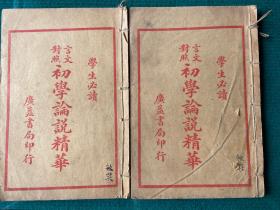 學生必讀
言文對照
初學論說精華
廣益書局印行
學生必讀
言文對照
初學論說精華
廣益書局印行